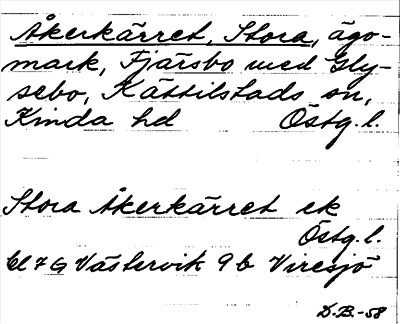 Åkerkärret, Stora, ägo-
mark, Fjärsbo med Gly-
sebo, Kättilstads sn,
Kinda hd Östg.l.
Stora Åkerkärret ek
Östg.l.
Bl 7G Västervik 9b Viresjö
D.B.-58